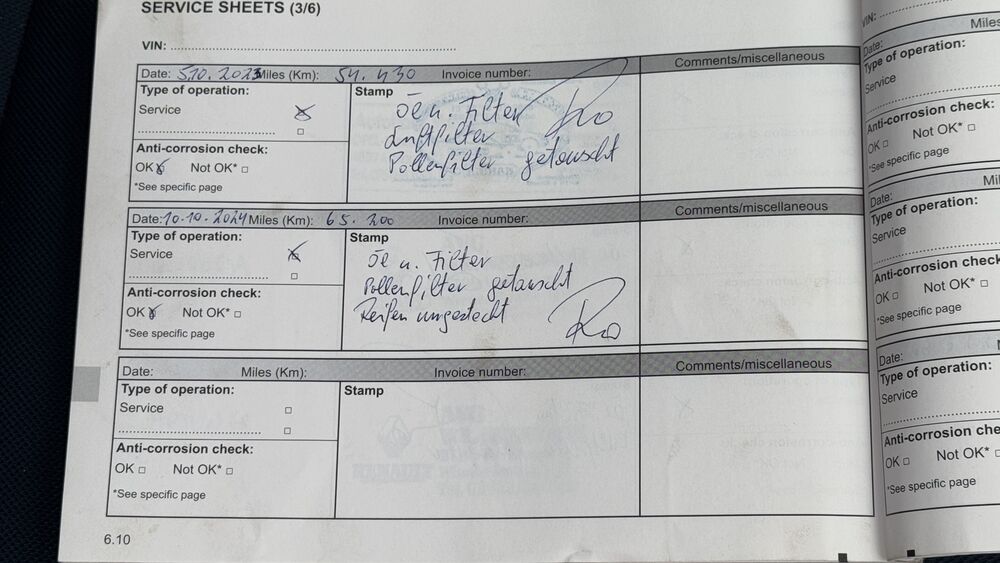 SERVICE SHEETS (3/6)
VIN:
Date: 5.10.2023 Miles (Km): 54.430 Invoice number: Comments/miscellaneous
Type of operation: Stamp
Service
Öl u. Filter
Luftfilter
Pollenfilter getauscht
Anti-corrosion check:
OK Not OK*
*See specific page
Date: 10.10.2024 Miles (Km): 65.200 Invoice number: Comments/miscellaneous
Type of operation: Stamp
Service
Öl u. Filter
Pollenfilter getauscht
Reifen umgesteckt
Anti-corrosion check:
OK Not OK*
*See specific page
Date: Miles (Km): Invoice number: Comments/miscellaneous
Type of operation: Stamp
Service
Anti-corrosion check:
OK Not OK*
*See specific page
6.10
VIN:
Date: Miles
Type of operation:
Service
Anti-corrosion check:
OK Not OK*
*See specific page
Date:
Type of operation:
Service
Anti-corrosion check:
OK Not OK*
*See specific page
Date:
Type of operation:
Service
Anti-corrosion che
OK Not OK*
*See specific page